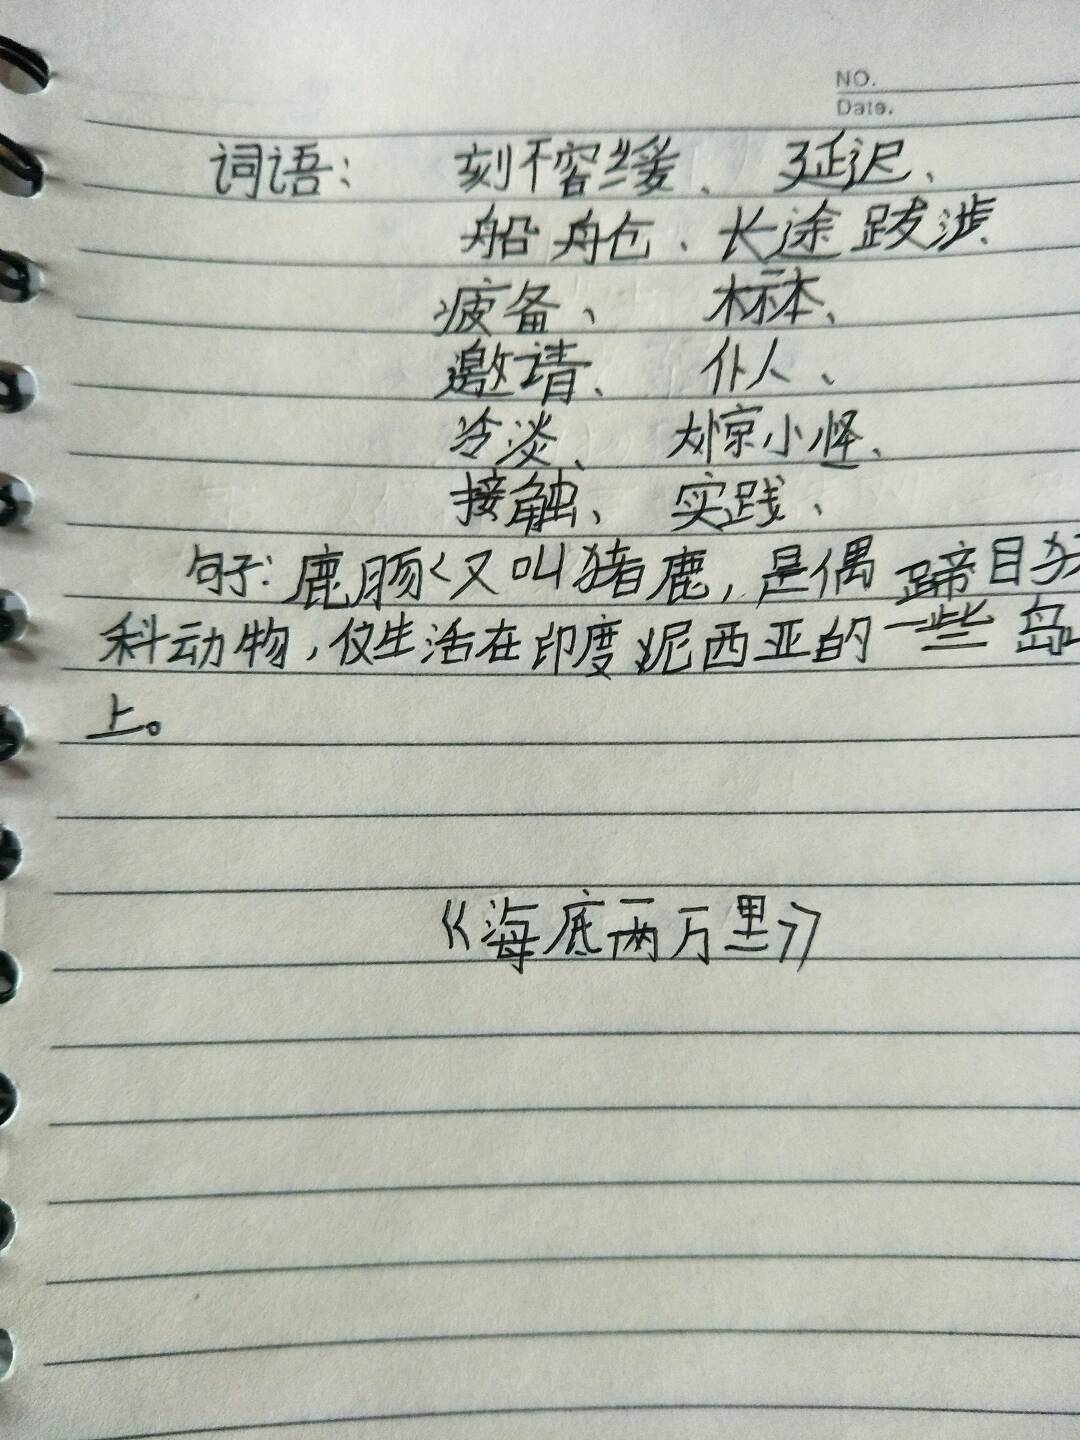 NO.
Date.
词语： 刻不容缓、 延迟、
船舱、长途跋涉、
疲备、 标本、
邀请、 仆人、
冷淡、 大惊小怪、
接触、 实践、
句子：鹿肠<又叫猪鹿，是偶蹄目
科动物，仅生活在印度妮西亚的一些岛
上。
《海底两万里》